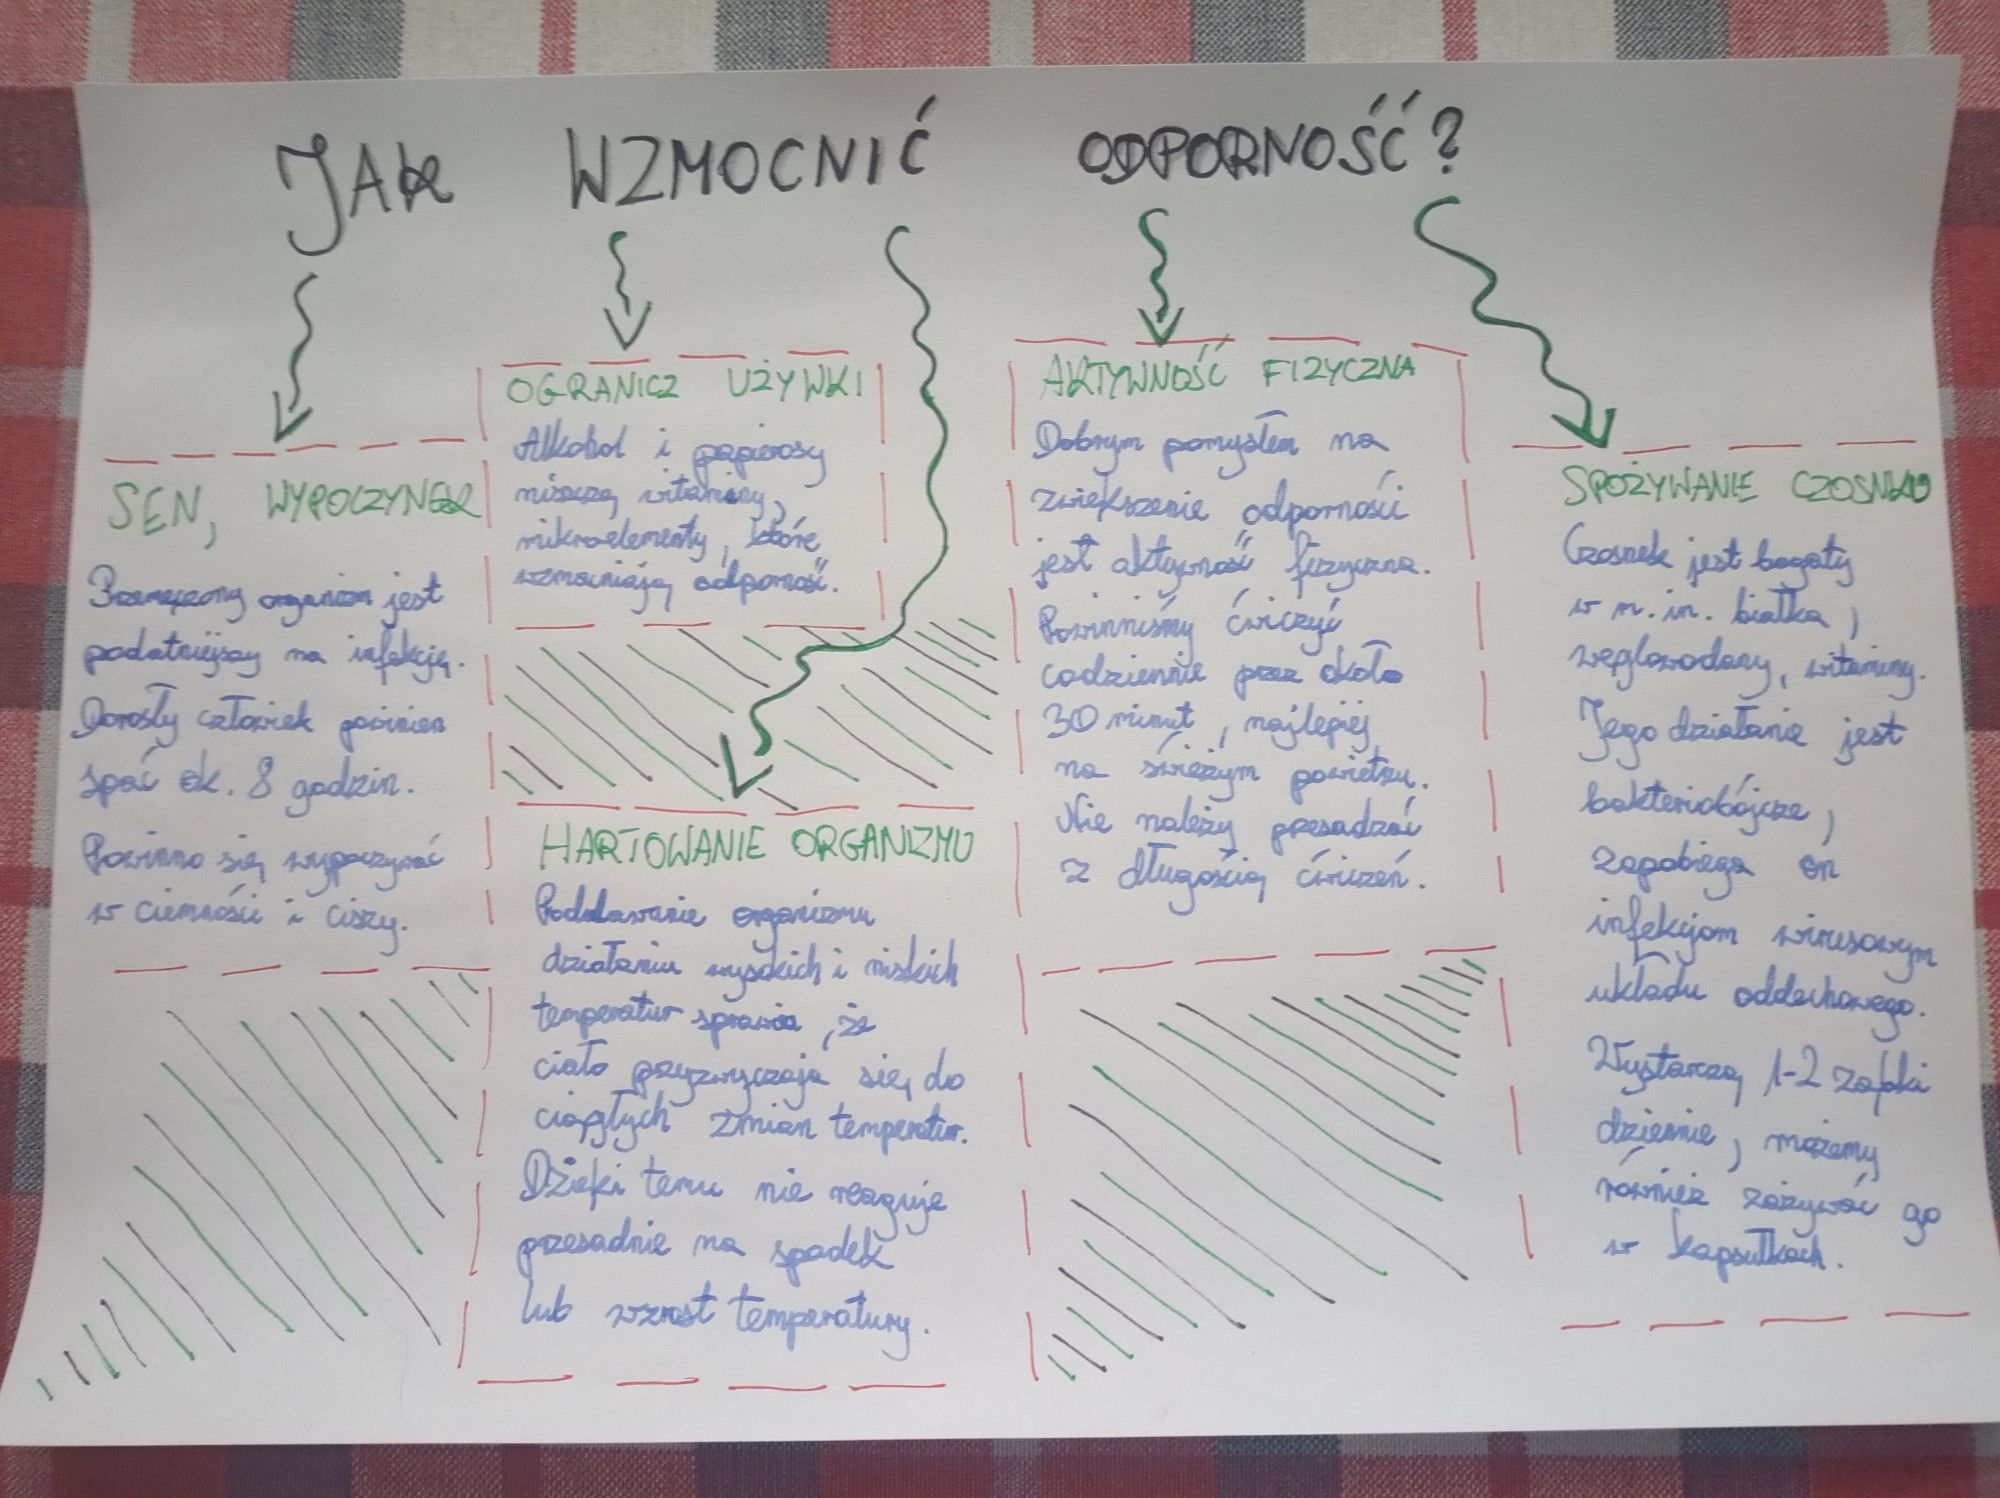 JAK WZMOCNIĆ ODPORNOŚĆ?
SEN, WYPOCZYNEK
Przemęczony organizm jest
podatniejszy na infekcję.
Dorosły człowiek powinien
spać ok. 8 godzin.
Powinno się wypoczywać
w ciemności i ciszy.
OGRANICZ UŻYWKI
Alkohol i papierosy
niszczą witaminy,
mikroelementy, które
wzmacniają odporność.
HARTOWANIE ORGANIZMU
Poddawanie organizmu
działaniu wysokich i niskich
temperatur sprawia, że
ciało przyzwyczaja się do
ciągłych zmian temperatur.
Dzięki temu nie reaguje
przesadnie na spadek
lub wzrost temperatury.
AKTYWNOŚĆ FIZYCZNA
Dobrym pomysłem na
zwiększenie odporności
jest aktywność fizyczna.
Powinniśmy ćwiczyć
codziennie przez około
30 minut, najlepiej
na świeżym powietrzu.
Nie należy przesadzać
z długością ćwiczeń.
SPOŻYWANIE CZOSNKU
Czosnek jest bogaty
w m.in. białka,
węglowodany, witaminy.
Jego działanie jest
bakteriobójcze,
zapobiega on
infekcjom wirusowym
układu oddechowego.
Wystarczą 1-2 ząbki
dziennie, możemy
również zażywać go
w kapsułkach.